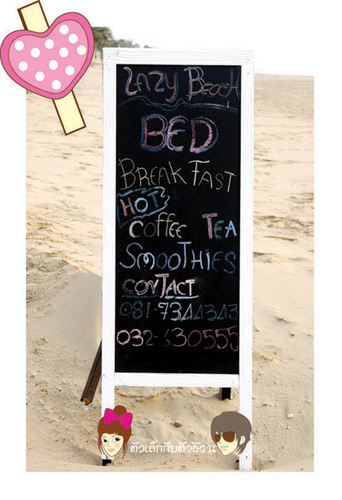 Lazy Beach
BED
BREAKFAST
HOT
Coffee TEA
SMOOTHIES
CONTACT
081-7344343
032-630555
ตัวเล็กกับตัวอ้วน